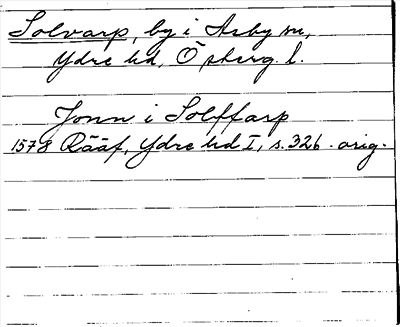 Solvarp, by i Asby sn,
Ydre hd, Österg. l.
Jonn i Solffarp
1578 Rääf, Ydre hd I, s. 326. orig.